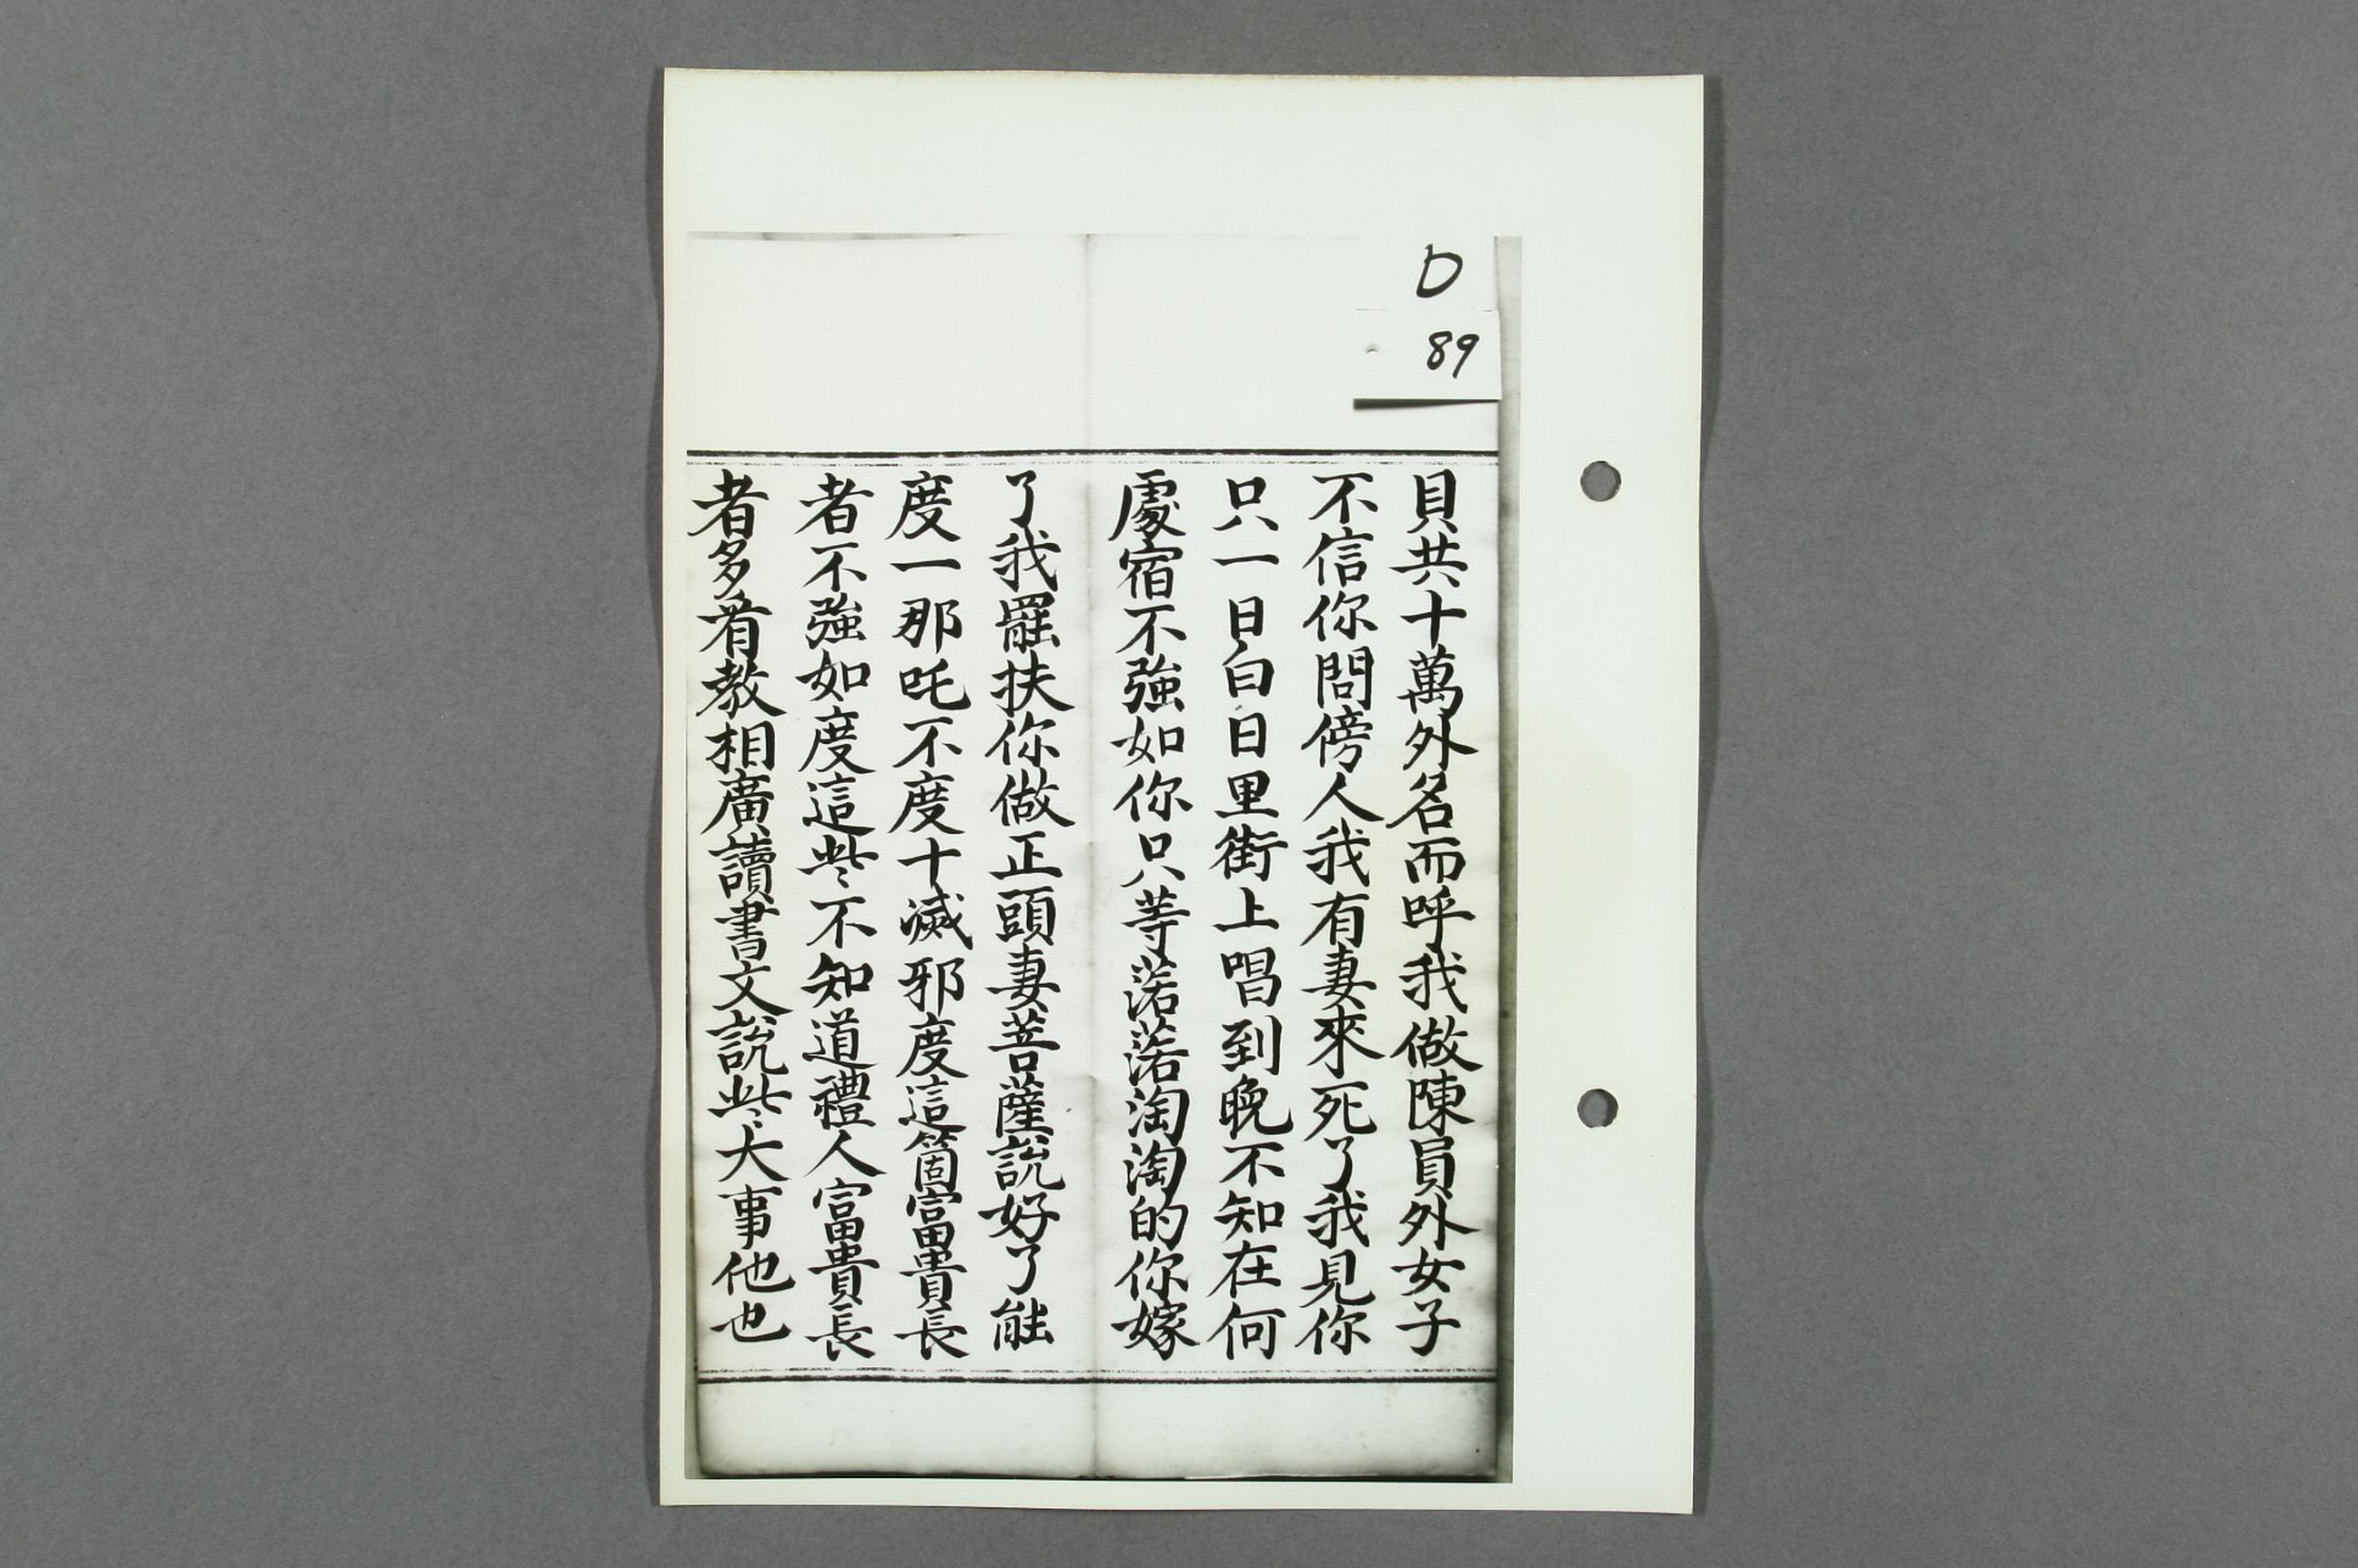 D
89
貝共十萬外名而呼我做陳員外女子
不信你問傍人我有妻來死了我見你
只一日白日里街上唱到晚不知在何
處宿不強如你只等浩浩淘淘的你嫁
了我罷扶你做正頭妻菩薩說好了能
度一那吒不度十滅邪度這箇富貴長
者不強如度這些不知道禮人富貴長
者多有教相廣讀書文說些大事他也